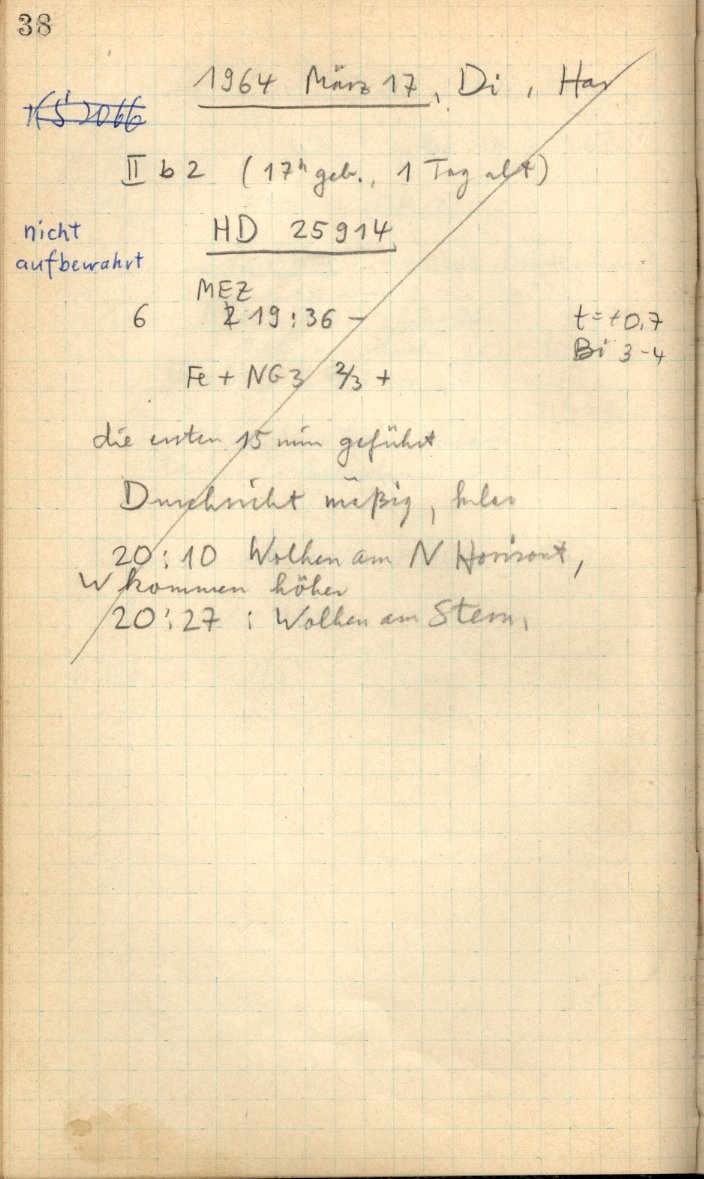 38
1964 März 17, Di, Har
KS 2066
II b 2 (17h geb., 1 Tag alt)
nicht
aufbewahrt
HD 25914
MEZ
6 19:36 –
t = +0,7
Bi 3-4
Fe + NG3 2/3 +
die ersten 15 min geführt
Durchsicht mäßig, klar
20:10 Wolken am N Horizont,
W kommen höher
20:27 : Wolken am Stern,